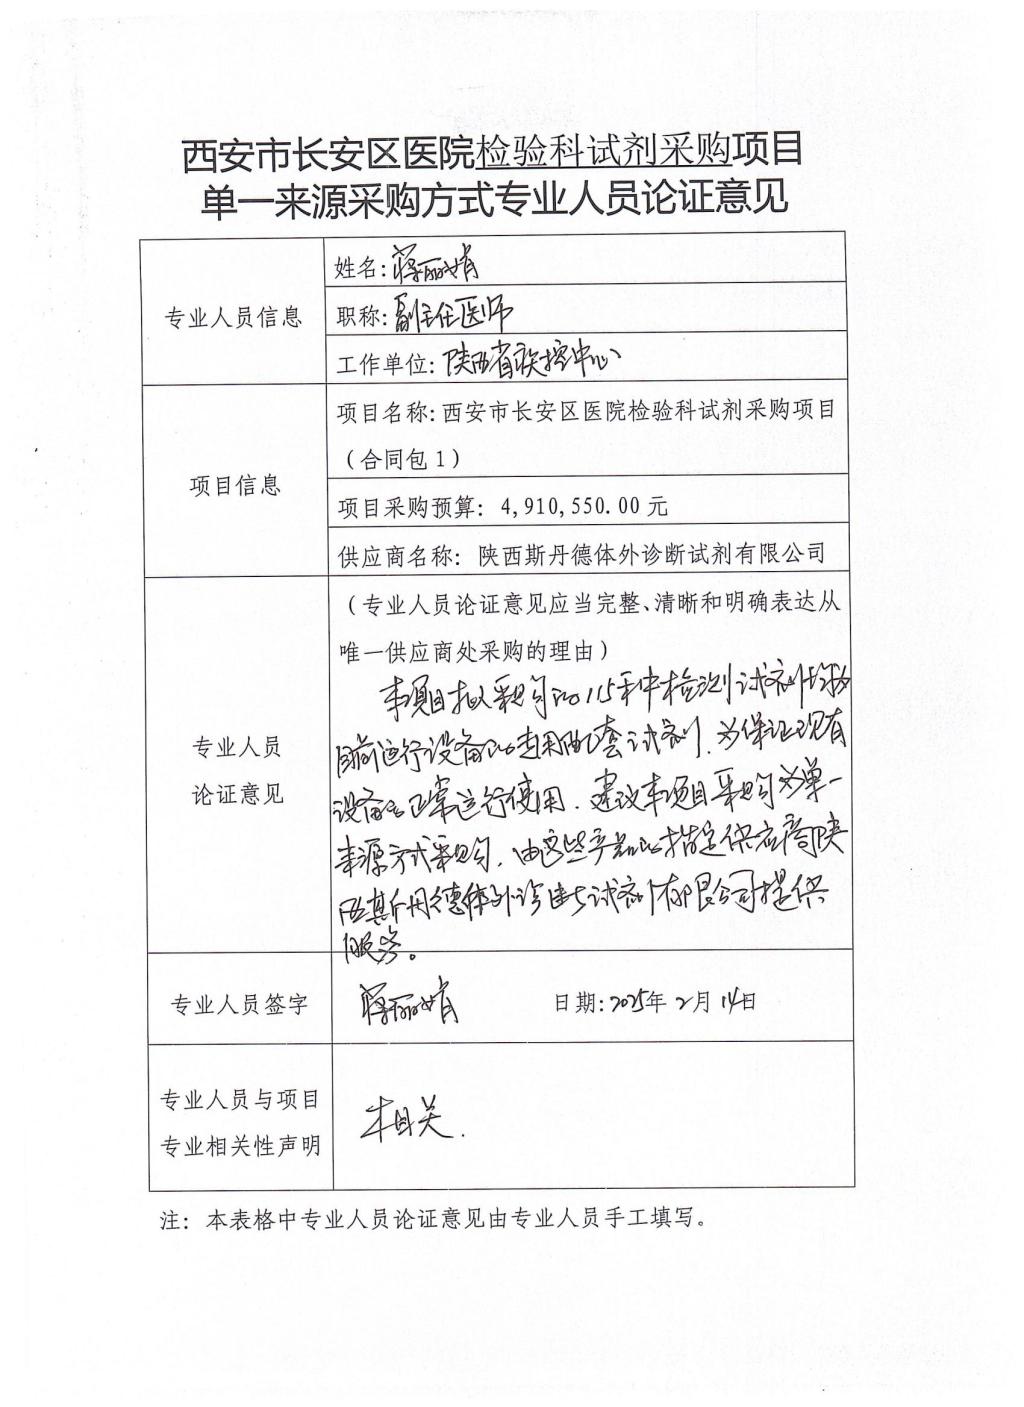 西安市长安区医院检验科试剂采购项目
单一来源采购方式专业人员论证意见
专业人员信息
姓名:蒋丽娟
职称:副主任医师
工作单位:陕西省疾控中心
项目信息
项目名称:西安市长安区医院检验科试剂采购项目
（合同包1）
项目采购预算: 4,910,550.00元
供应商名称: 陕西斯丹德体外诊断试剂有限公司
专业人员
论证意见
（专业人员论证意见应当完整、清晰和明确表达从
唯一供应商处采购的理由）
本项目拟采购的115种检测试剂均为
目前运行设备的专用配套试剂,为保证现有
设备的正常运行使用.建议本项目采购为单一
来源方式采购,由这些产品的指定供应商陕
西斯丹德体外诊断试剂有限公司提供
服务。
专业人员签字
蒋丽娟
日期:2025年2月14日
专业人员与项目
专业相关性声明
相关.
注: 本表格中专业人员论证意见由专业人员手工填写。